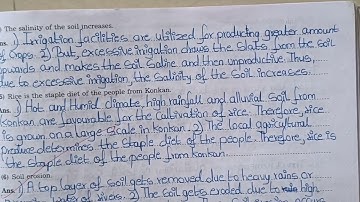 ) The salinity of the soil increases.
Ans. 1) Irrigation facilities are utilized for producing greater amount
of Crops. 2) But, excessive irrigation draws the Slats from the soil
upwards and makes the soil Saline and then unproductive. Thus,
due to excessive irrigation, the Salinity of the Soil increases.
5) Rice is the staple diet of the people from Konkan.
Ans. 1) Hot and Humid climate, high rainfall and alluvial soil from
Konkan are favourable for the cultivation of rice. Therefore, rice
is grown on a large Scale in Konkan. 2) The local agricultural
produce determines the staple diet of the people. Therefore, rice is
the staple diet of the people from Konkan.
(6) Soil erosion.
Ans. 1) A top layer of soil gets removed due to heavy rains or
of rivers. 2) The soil gets eroded due to high